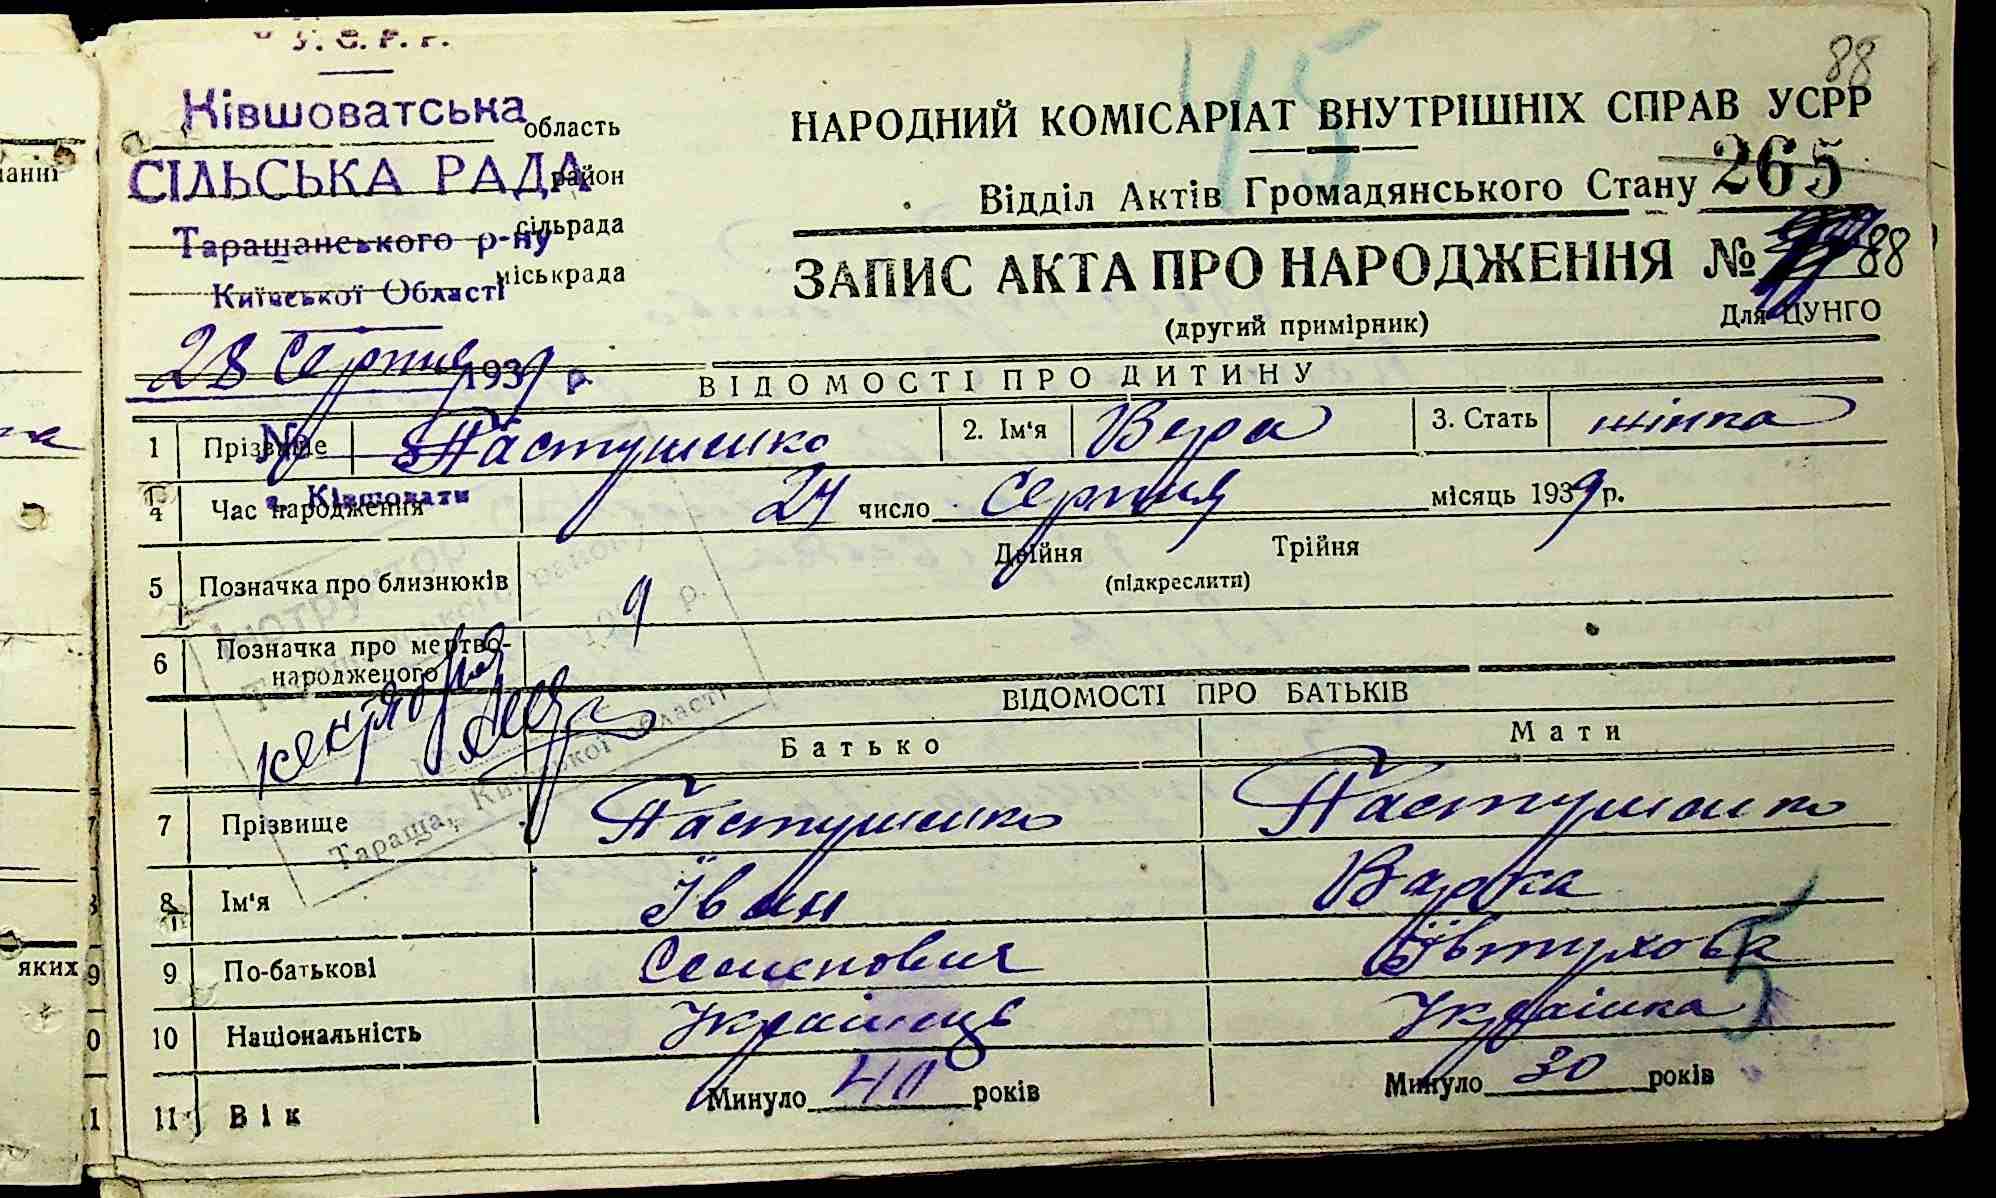 У. С. Р. Р.
88
45
Ківшоватська область
НАРОДНИЙ КОМІСАРІАТ ВНУТРІШНІХ СПРАВ УСРР
СІЛЬСЬКА РАДА район
Відділ Актів Громадянського Стану 265
Таращанського р-ну сільрада
Київської Області міськрада
ЗАПИС АКТА ПРО НАРОДЖЕННЯ № 88
(другий примірник)
Для ЦУНГО
28 Серпня 1939 р.
ВІДОМОСТІ ПРО ДИТИНУ
1 Прізвище Пастушенко 2. Ім'я Вера 3. Стать жінка
№
с. Ківшовати
4 Час народження 24 число Серпня місяць 1939 р.
5 Позначка про близнюків Двійня Трійня
(підкреслити)
6 Позначка про мертво-
народженого
ВІДОМОСТІ ПРО БАТЬКІВ
Батько Мати
7 Прізвище Пастушенко Пастушенко
8 Ім'я Іван Варка
9 По-батькові Семенович Івтухова
10 Національність Українець Українка
11 Вік Минуло 40 років Минуло 30 років
Тараща, Київської області
5
яких